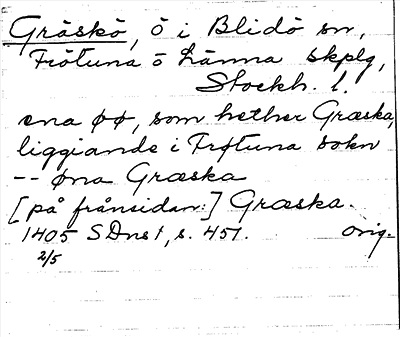 Gräskö, ö i Blidö sn,
Frötuna o Länna skplg,
Stockh. l.
ena øø, som hether Græska,
liggiande i Frøtuna sokn
-- øna Græska
[på frånsidan:] Græska.
1405 SDns 1, s. 451. orig.
2/5